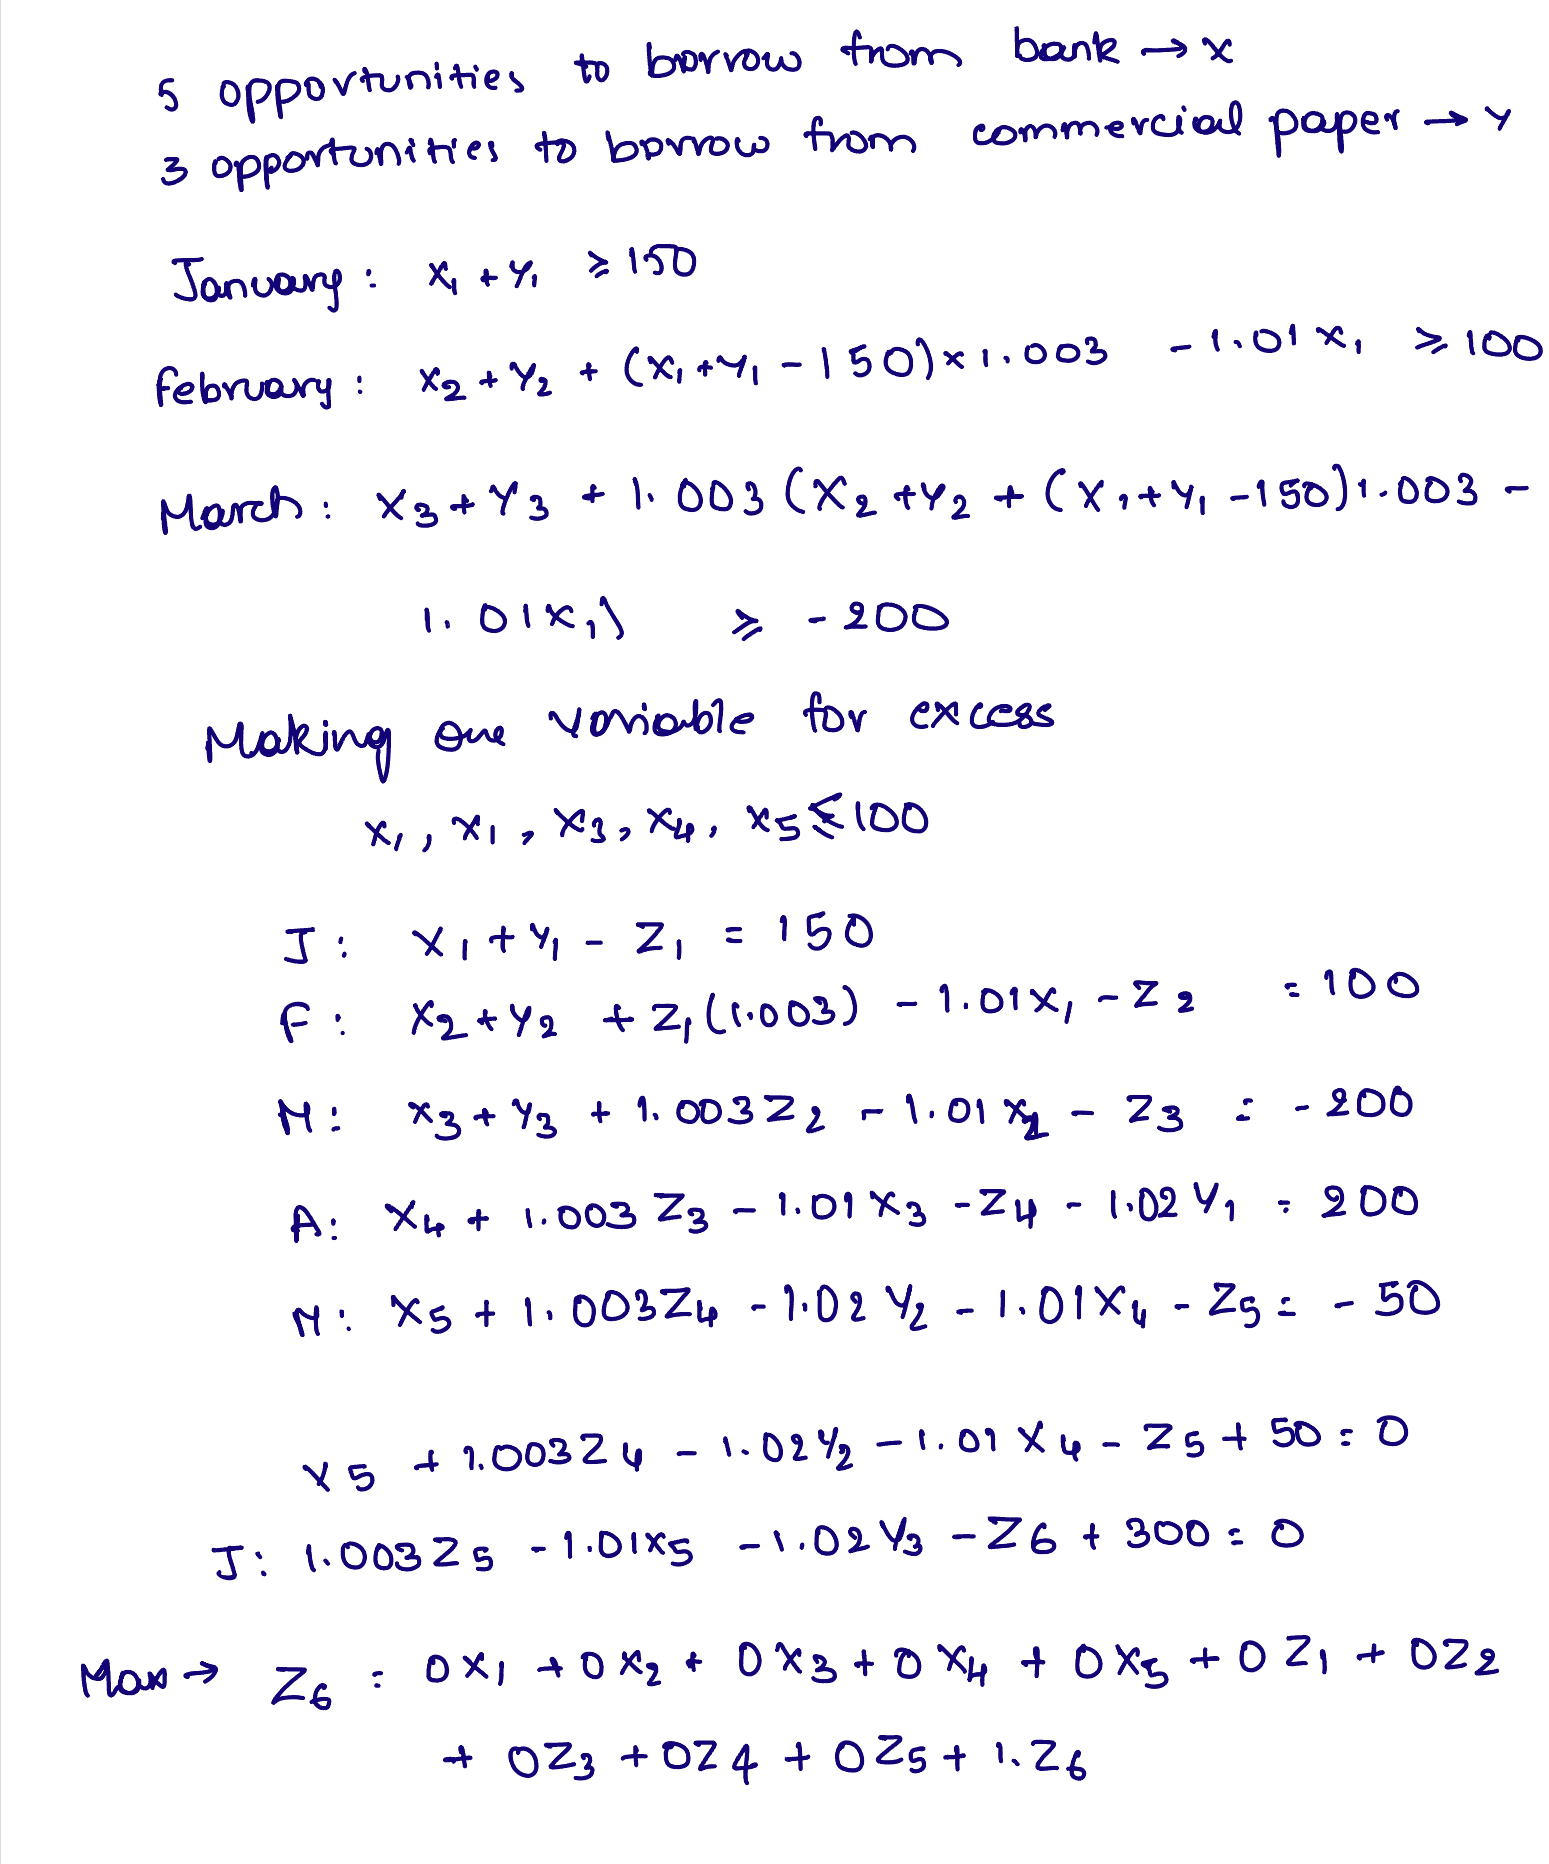 5 opportunities to borrow from bank → x
3 opportunities to borrow from commercial paper → y
January : x₁ + y₁ ≥ 150
february : x₂ + y₂ + (x₁ + y₁ - 150) × 1.003 - 1.01 x₁ ≥ 100
March : x₃ + y₃ + 1.003 (x₂ + y₂ + (x₁ + y₁ - 150) 1.003 -
1.01x₁) ≥ - 200
Making one variable for excess
x₁, x₁, x₃, x₄, x₅ ≤ 100
J : x₁ + y₁ - z₁ = 150
F : x₂ + y₂ + z₁ (1.003) - 1.01x₁ - z₂ = 100
M : x₃ + y₃ + 1.003 z₂ - 1.01 x₂ - z₃ = - 200
A : x₄ + 1.003 z₃ - 1.01 x₃ - z₄ - 1.02 y₁ = 200
M : x₅ + 1.003 z₄ - 1.02 y₂ - 1.01 x₄ - z₅ = - 50
x₅ + 1.003 z₄ - 1.02 y₂ - 1.01 x₄ - z₅ + 50 = 0
J : 1.003 z₅ - 1.01x₅ - 1.02 y₃ - z₆ + 300 = 0
Max → z₆ = 0x₁ + 0x₂ + 0x₃ + 0x₄ + 0x₅ + 0z₁ + 0z₂
+ 0z₃ + 0z₄ + 0z₅ + 1.z₆